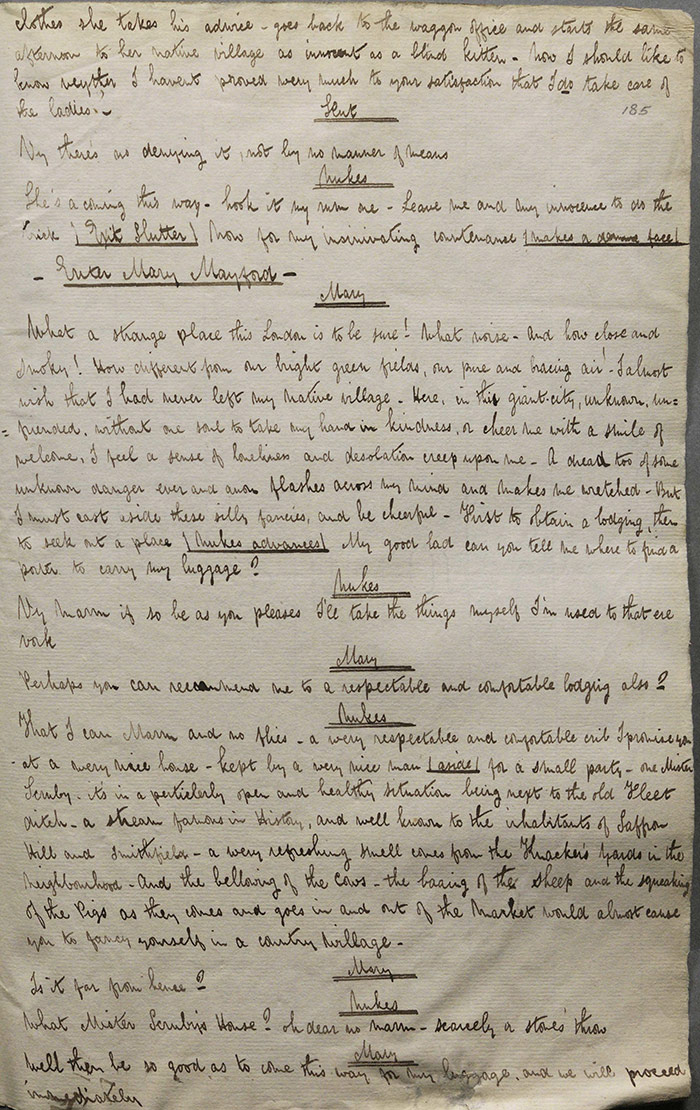 clothes she takes his adwice - goes back to the waggon office and starts the same
afternoon to her native village as innocent as a blind kitten - Now I should like to
know veyther I havent proved wery much to your satisfaction that I do take care of
the ladies. -
185
Slut
Vy there's no denying it, not by no manner of means
Nukes
She's a coming this way - hook it my rum one - Leave me and my innocence to do the
trick (Exit Slutter) Now for my insinivating countenance (makes a demure face)
- Enter Mary Mayford -
Mary
What a strange place this London is to be sure! What noise - and how close and
smoky! How different from our bright green fields, our pure and bracing air! - I almost
wish that I had never left my native village - Here, in this giant-city, unknown, un=
=friended, without one soul to take my hand in kindness, or cheer me with a smile of
welcome, I feel a sense of loneliness and desolation creep upon me - A dread too of some
unknown danger ever and anon flashes across my mind and makes me wretched - But
I must cast aside these silly fancies, and be cheerful - First to obtain a lodging, then
to seek out a place (Nukes advances) My good lad can you tell me where to find a
porter to carry my luggage?
Nukes
Vy Marm if so be as you pleases I'll take the things myself I'm used to that ere
vork
Mary
Perhaps you can reccommend me to a respectable and comfortable lodging also?
Nukes
That I can Marm and no flies - a wery respectable and comfortable crib I promise you
- at a wery nice house - kept by a wery nice man (aside) for a small party - one Mister
Scruby - its in a perticlerly open and healthy situation being next to the old Fleet
ditch - a stream famous in History, and well known to the inhabitants of Saffron
Hill and Smithfield - a wery refreshing smell comes from the Knacker's Yards in the
neighbourhood - And the bellowing of the cows - the baaing of the sheep and the squeaking
of the Pigs as they comes and goes in and out of the Market would almost cause
you to fancy yourself in a country willage -
Mary
Is it far from hence?
Nukes
What Mister Scruby's House? oh dear no marm - scarcely a stones' throw
Mary
Well then be so good as to come this way for my luggage, and we will proceed
immediately